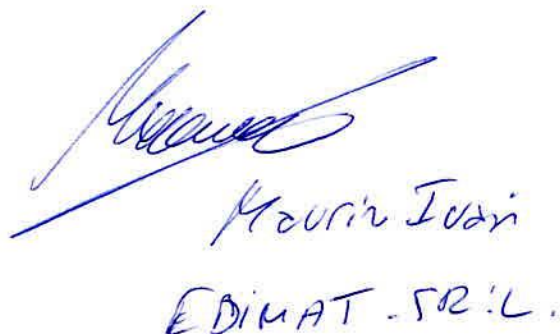 Maurin Iván
EDIMAT . S.R.L.